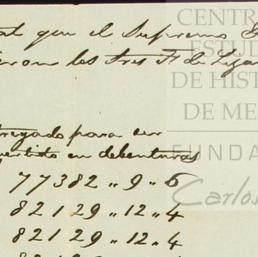 al que el Supremo
los tres F. de
tregado para ser
vertido en debenturas
77382 „ 9 „ 6
82129 „ 12 „ 4
82129 „ 12 „ 4
CENTR
ESTUD
DE HIST
DE ME
FUNDA
Carlos